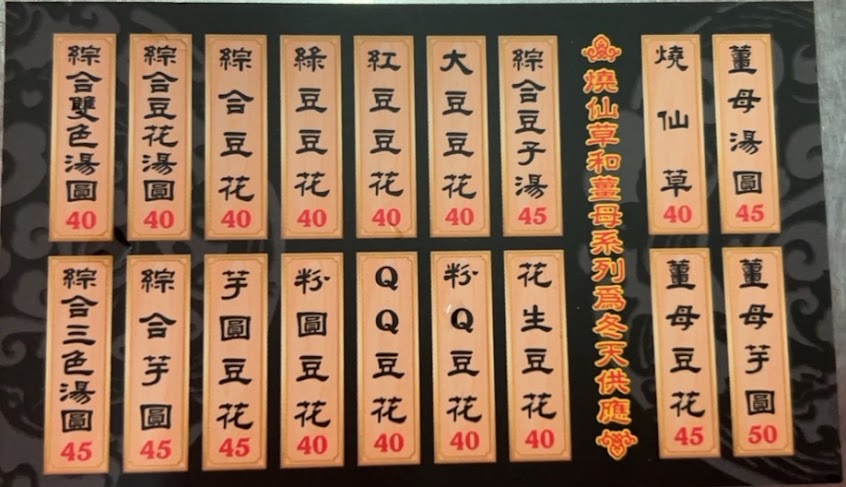 薑母湯圓 45
燒仙草 40
薑母芋圓 50
薑母豆花 45
燒仙草和薑母系列為冬天供應
綜合豆子湯 45
大豆豆花 40
紅豆豆花 40
綠豆豆花 40
綜合豆花 40
綜合豆花湯圓 40
綜合雙色湯圓 40
花生豆花 40
粉Q豆花 40
QQ豆花 40
粉圓豆花 40
芋圓豆花 45
綜合芋圓 45
綜合三色湯圓 45